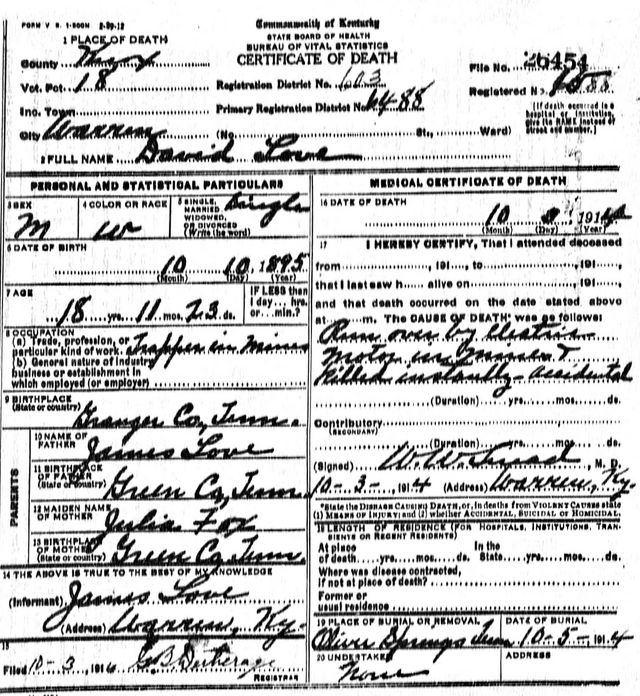 FORM V. S. 1-500M 2-29-12
Commonwealth of Kentucky
STATE BOARD OF HEALTH
BUREAU OF VITAL STATISTICS
CERTIFICATE OF DEATH
1 PLACE OF DEATH
County Knox
Vot. Pct. 18
Inc. Town
City Warren (No. St., Ward)
Registration District No. 603
Primary Registration District No. 6488
File No. 26454
Registered No.
(If death occurred in a hospital or institution, give its NAME instead of street and number.)
2 FULL NAME David Love
PERSONAL AND STATISTICAL PARTICULARS
3 SEX
M
4 COLOR OR RACE
W
5 SINGLE, MARRIED, WIDOWED, OR DIVORCED (Write the word)
Single
6 DATE OF BIRTH
10 10, 1895
(Month) (Day) (Year)
7 AGE
18 yrs. 11 mos. 23 ds.
IF LESS then 1 day, ... hrs. or ... min.?
8 OCCUPATION
(a) Trade, profession, or particular kind of work. Trapper in Mines
(b) General nature of industry, business or establishment in which employed (or employer)
9 BIRTHPLACE
(State or country) Granger Co, Tenn.
PARENTS
10 NAME OF FATHER James Love
11 BIRTHPLACE OF FATHER (State or country) Green Co, Tenn.
12 MAIDEN NAME OF MOTHER Julia Fox
13 BIRTHPLACE OF MOTHER (State or country) Green Co, Tenn.
14 THE ABOVE IS TRUE TO THE BEST OF MY KNOWLEDGE
(Informant) James Love
(Address) Warren, Ky.
15
Filed 10-3, 1914 G B
REGISTRAR
MEDICAL CERTIFICATE OF DEATH
16 DATE OF DEATH
10 1914
(Month) (Day) (Year)
17 I HEREBY CERTIFY, That I attended deceased
from , 191 , to , 191 ,
that I last saw h alive on , 191 ,
and that death occurred on the date stated above
at m. The CAUSE OF DEATH, was as follows:
Run over by Electric
Motor in Mines &
Killed instantly - accidental
(Duration) yrs. mos. ds.
Contributory
(SECONDARY)
(Duration) yrs. mos. ds.
(Signed) W. W. , M. D.
10-3-, 1914 (Address) Warren, Ky.
*State the DISEASE CAUSING DEATH, or, in deaths from VIOLENT CAUSES state (1) MEANS OF INJURY; and (2) whether ACCIDENTAL, SUICIDAL or HOMICIDAL.
18 LENGTH OF RESIDENCE (FOR HOSPITALS, INSTITUTIONS, TRANSIENTS OR RECENT RESIDENTS)
At place of death yrs. mos. ds. In the State yrs. mos. ds.
Where was disease contracted, if not at place of death?
Former or usual residence
19 PLACE OF BURIAL OR REMOVAL
Oliver Springs Tenn
DATE OF BURIAL
10-5-, 1914
20 UNDERTAKER
None
ADDRESS